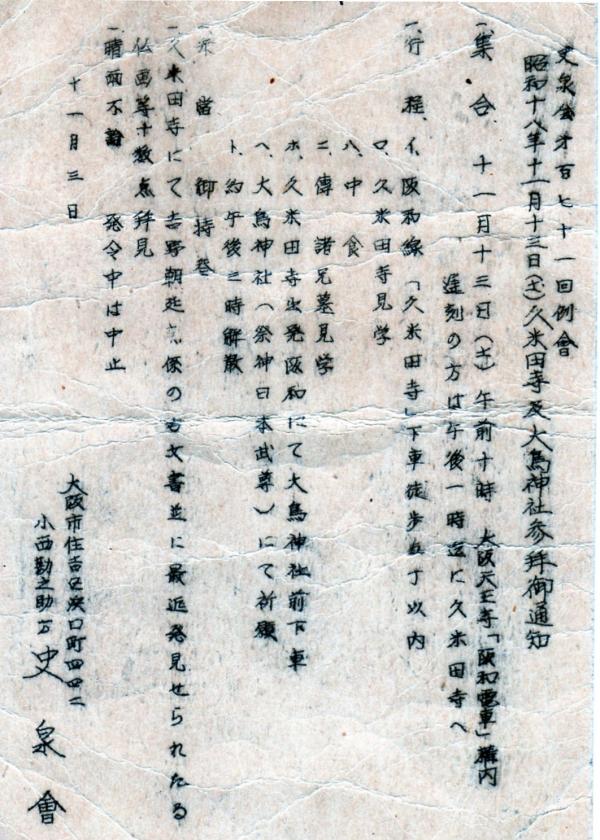 史泉会才百七十一回例會
昭和十八年十一月十三日(土)久米田寺及大鳥神社参拜御通知
一、集合 十一月十三日(土)午前十時 大阪天王寺「阪和電車」構内
遅刻の方は午後一時迄に久米田寺へ
一、行程、イ、阪和線「久米田寺」下車徒歩五丁以内
ロ、久米田寺見学
ハ、中食
ニ、傳 諸兄墓見学
ホ、久米田寺出発阪和にて大鳥神社前下車
ヘ、大鳥神社(祭神日本武尊)にて祈願
ト、約午後三時解散
御持参
一、久米田寺にて吉野朝延関係の古文書並に最近発見せられたる
仏画等十数点拜見
一、晴雨不論 発令中は中止
十一月三日
大阪市住吉区浜口町四四二
小西勘之助方 史泉會